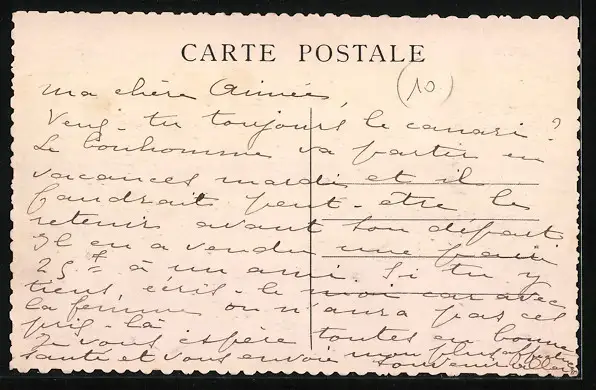 CARTE POSTALE
(10)
Ma chère Aimée,
Veux-tu toujours le canari ?
Le bonhomme va partir en
vacances mardi et il
faudrait peut-être le
retenir avant son départ
Il en a vendu une paire
25 F à un ami. Si tu y
tiens, écris-le moi car avec
la femme on n'aura pas ces
prix-là
Je vous espère toutes en bonne
santé et vous envoie mon plus affectueux
souvenir